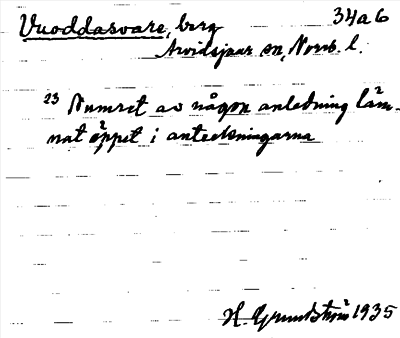 Vuoddasvare, berg 34a6
Arvidsjaur sn, Norrb. l.
23 Numret av någon anledning läm-
nat öppet i anteckningarna
H. Grundström 1935